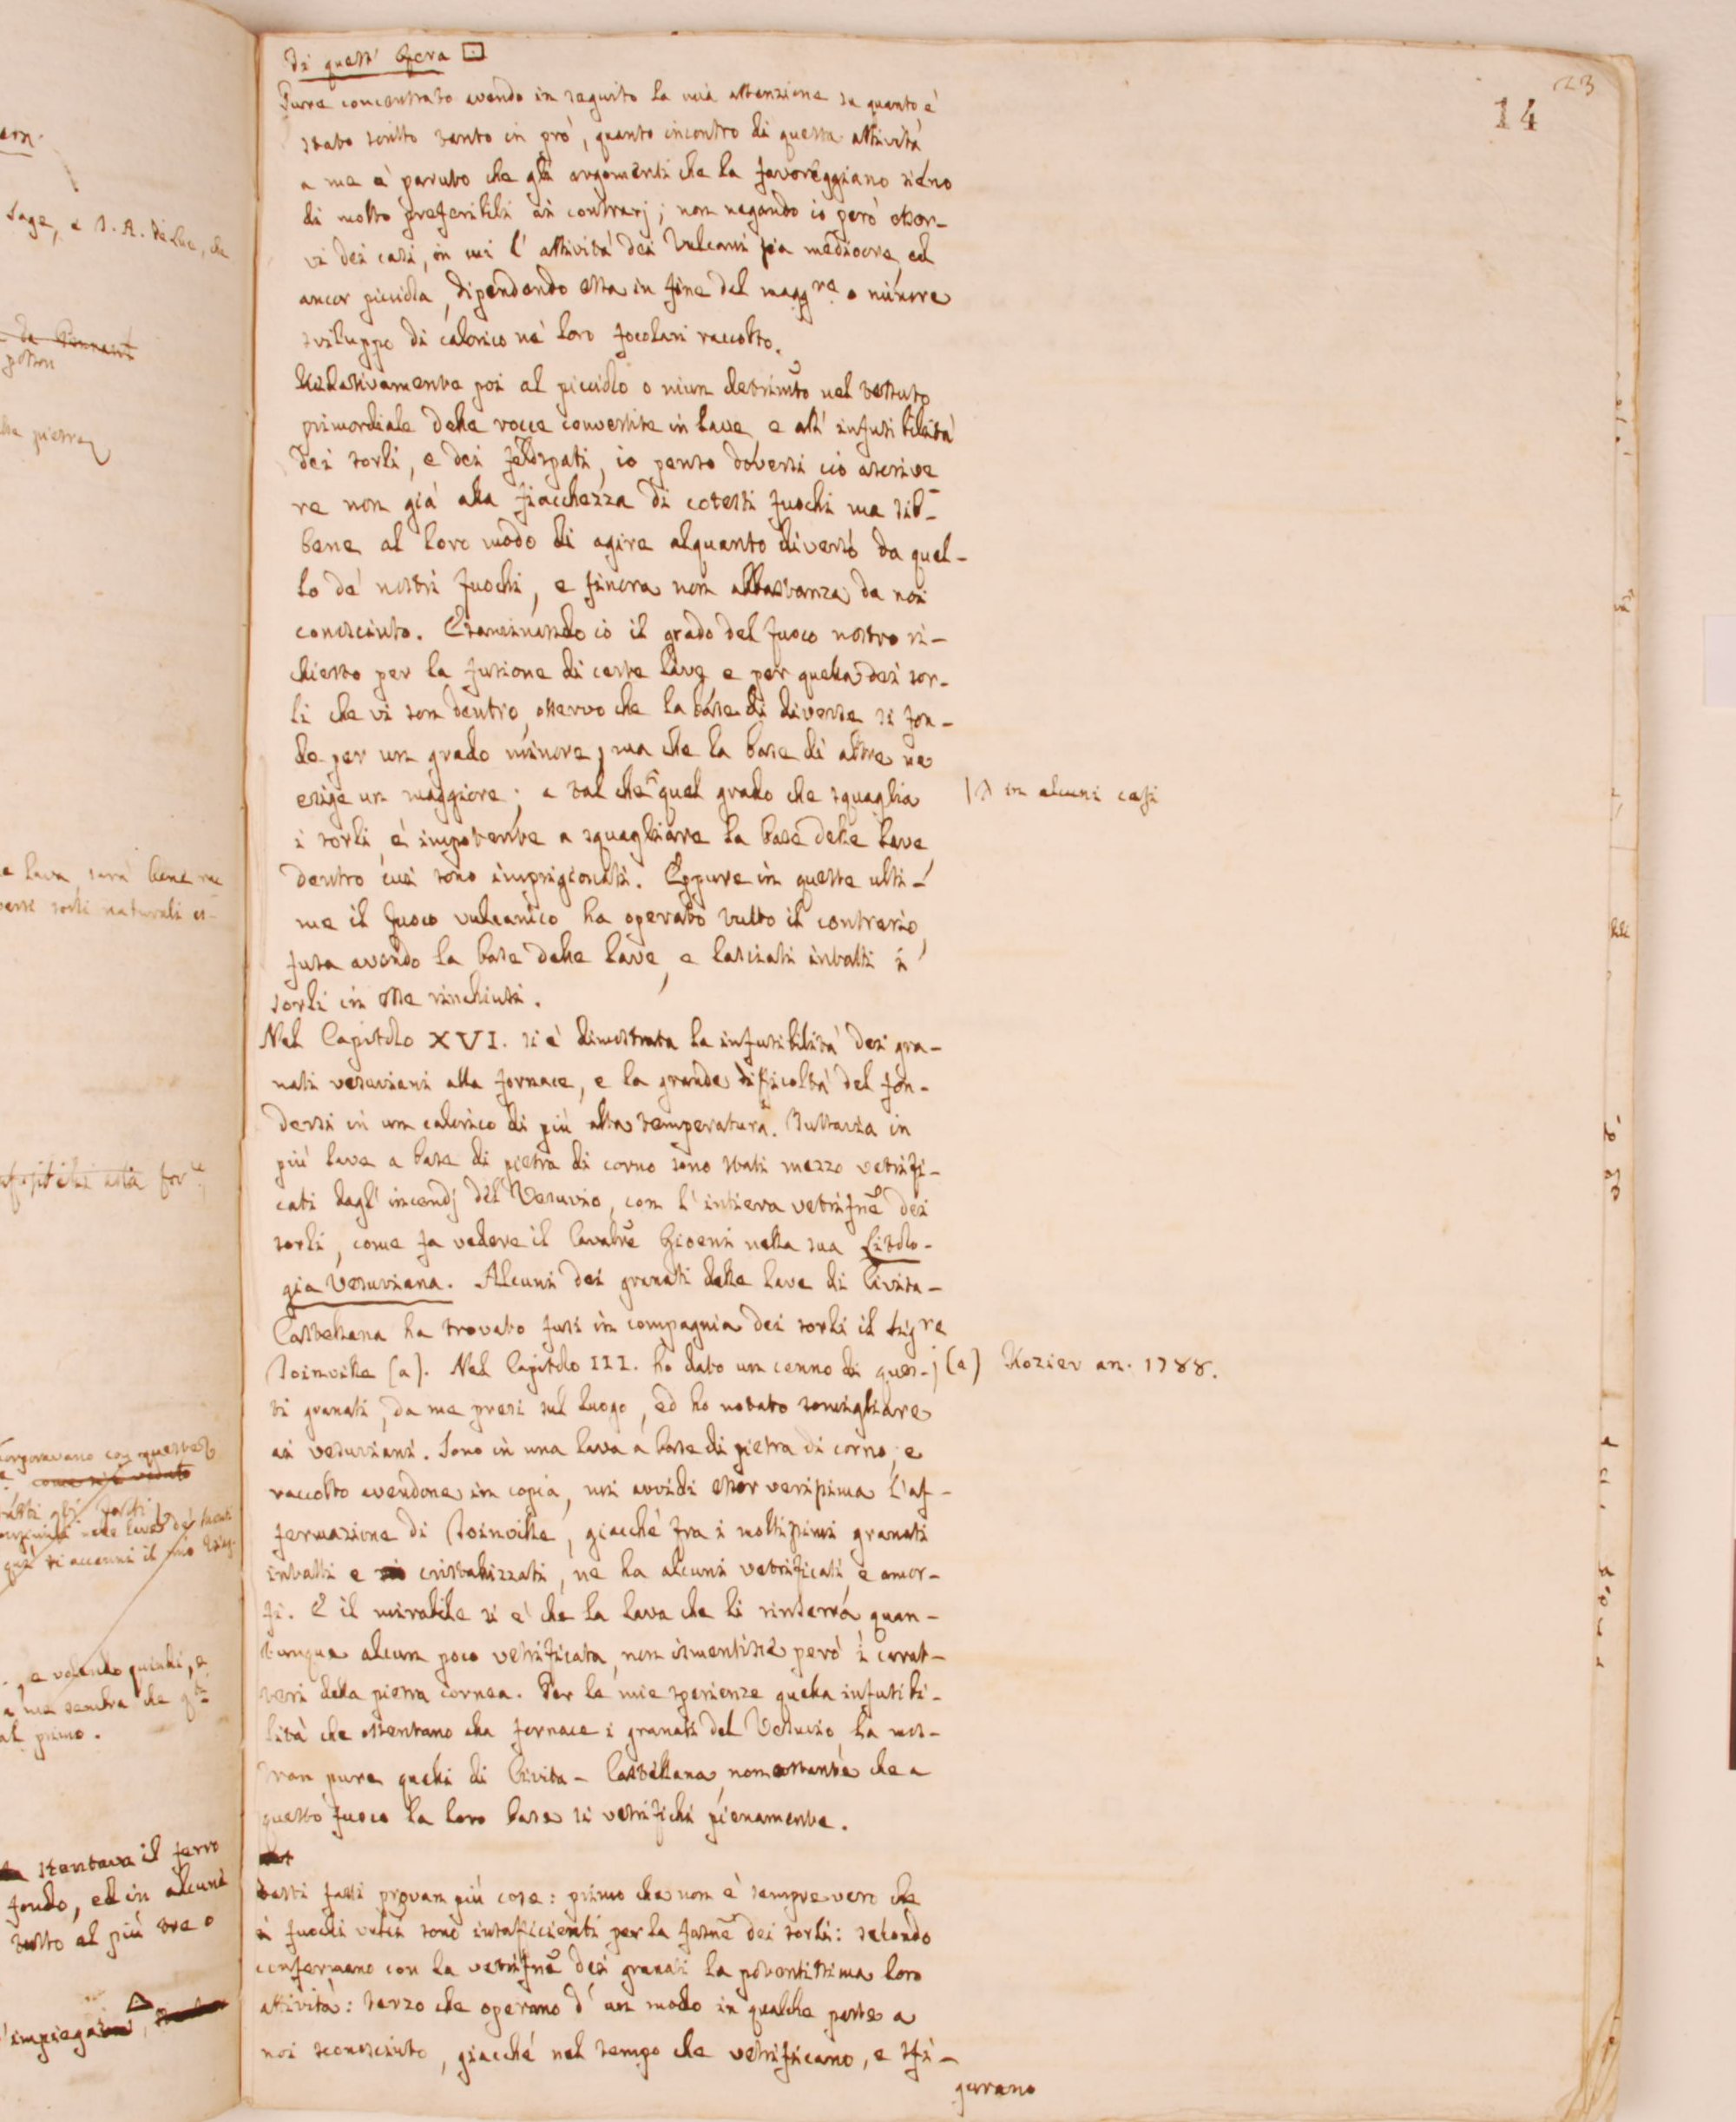 23
14
di quest' Opera
Pure concentrato avendo in seguito la mia attenzione su quanto è
stato scritto tanto in prò, quanto incontro di questa attività
a me è paruto che gli argomenti che la favoreggiano sieno
di molto preferibili ai contrarj; non negando io però esser-
vi dei casi, in cui l' attività dei Vulcani sia mediocre, ed
ancor picciola, dipendendo essa in fine dal magg.re o minore
sviluppo di calorico ne' loro focolari raccolto.
Relativamente poi al picciolo o niun detrimto nel tessuto
primordiale delle rocce convertite in lave, e all' infusibilità
dei sorli, e dei feldspati, io penso doversi ciò ascrive
re non già alla fiacchezza di cotesti fuochi ma sib-
bene al loro modo di agire alquanto diverso da quel-
lo de' nostri fuochi, e finora non abbastanza da noi
conosciuto. Esaminando io il grado del fuoco nostro ri-
chiesto per la fusione di certe lave e per quella dei sor-
li che vi son dentro, osservo che la base di diverse si fon-
de per un grado minore, ma che la base di altre ne
esige un maggiore; a tal che quel grado che squaglia
in alcuni casi
i sorli, è impotente a squagliare la base delle lave
dentro cui sono imprigionati. Eppure in queste ulti-
me il fuoco vulcanico ha operato tutto il contrario,
fusa avendo la base delle lave, e lasciati intatti i
sorli in esse rinchiusi.
Nel Capitolo XVI. si è dimostrata la infusibilità dei gra-
nati vesuviani alla fornace, e la grande difficoltà del fon-
dersi in un calorico di più alta temperatura. Tuttavia in
più lave a base di pietra di corno sono stati mezzo vetrifi-
cati dagl' incendj del Vesuvio, con l' intiera vetrifne dei
sorli, come fa vedere il Cavalre Gioeni nella sua Litolo-
gia Vesuviana. Alcuni dei granati delle lave di Civita-
Castellana ha trovato fusi in compagnia dei sorli il Sigre
Joinville (a). Nel Capitolo III. ho dato un cenno di ques-
(a) Rozier an. 1788.
ti granati, da me presi sul luogo, ed ho notato somigliare
ai vesuviani. Sono in una lava a base di pietra di corno, e
raccolto avendone in copia, mi avvidi esser verissima l'af-
fermazione di Joinville, giacchè fra i moltissimi granati
intatti e cristallizzati, ne ha alcuni vetrificati, e amor-
fi. E il mirabile si è che la lava che li rinserra, quan-
tunque alcun poco vetrificata, non ismentisce però i carat-
teri della pietra cornea. Per le mie sperienze quella infusibi-
lità che ostentano alla fornace i granati del Vesuvio, la mos-
tran pure quelli di Civita-Castellana, nonostante che a
questo fuoco la loro base si vetrifichi pienamente.
testi fatti provan più cose: primo che non è sempre vero che
i fuochi vulci sono insuficienti per la fusne dei sorli: secondo
confermano con la vetrifne dei granati la potentissima loro
attività: terzo che operano d' un modo in qualche parte a
noi sconosciuto, giacchè nel tempo che vetrificano, e sfi-
gurano